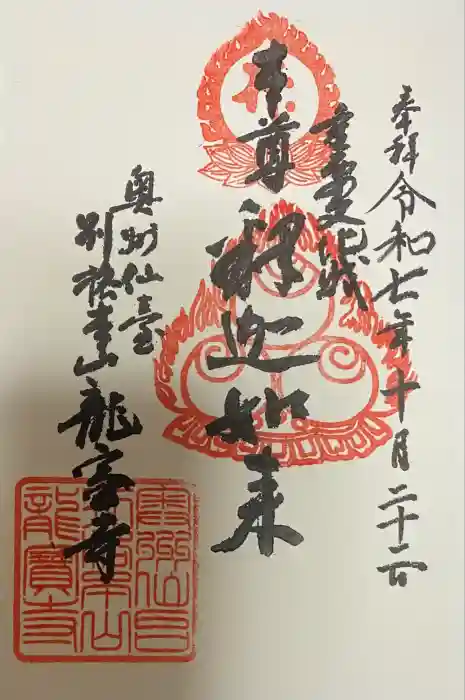 奉拝 令和七年十月二十二日
重要文化財
本尊 釋迦如来
奥州仙臺
別格本山 龍宝寺
龍寳寺